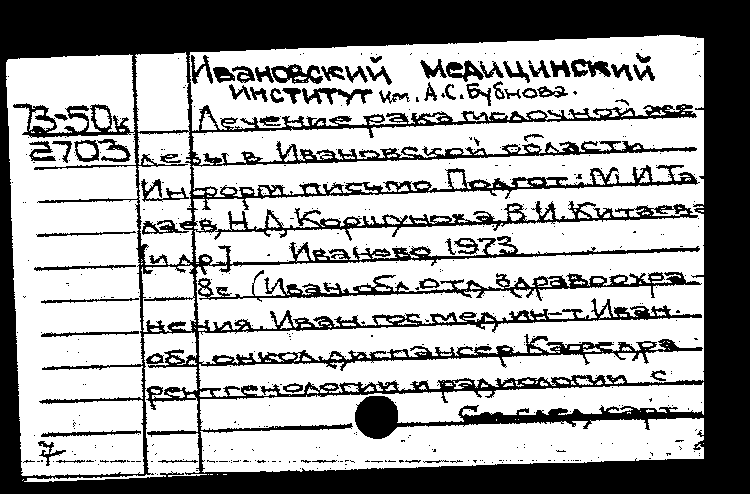 Ивановский медицинский
институт им. А.С. Бубнова.
73-50к Лечение рака молочной же-
2703 лезы в Ивановской области
Информ. письмо. Подгот.: М.И. Та-
лаев, Н.Д. Коршунова, В.И. Китаева
[и др.]. Иваново, 1973
8с. (Иван. обл. отд. здравоохра-
нения. Иван. гос. мед. ин-т. Иван.
обл. онкол. диспансер. Кафедра
рентгенологии и радиологии с
См. след. карт.
7